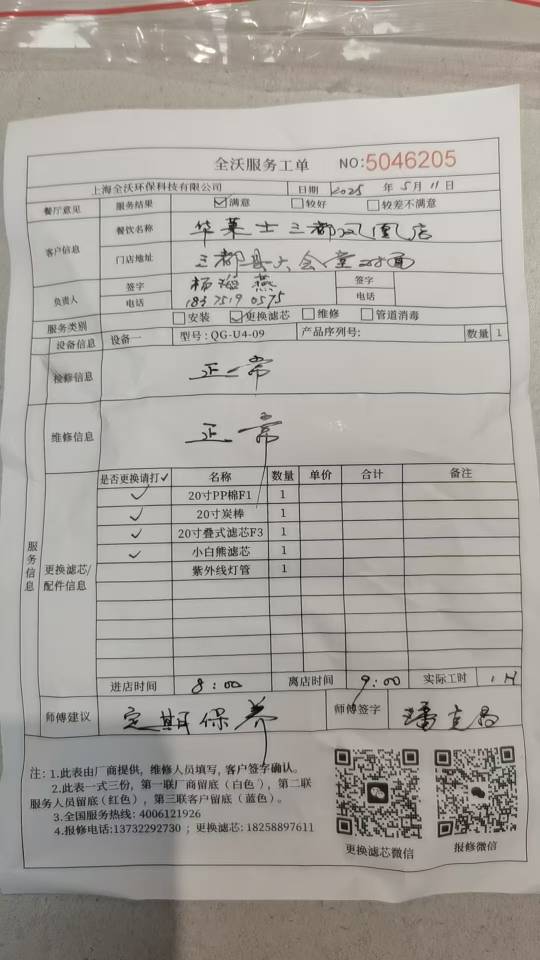 全沃服务工单 NO:5046205
上海全沃环保科技有限公司 日期 2025 年 5 月 11 日
餐厅意见 服务结果 ☑满意 □较好 □较差不满意
客户信息 餐饮名称 华莱士三都凤凰店
门店地址 三都县大会堂对面
负责人 签字 杨海燕 签字
电话 18375190575 电话
服务类别 □安装 ☑更换滤芯 □维修 □管道消毒
设备信息 设备一 型号: QG-U4-09 产品序列号: 数量 1
检修信息 正常
维修信息 正常
服务信息 更换滤芯/配件信息
是否更换请打✓ 名称 数量 单价 合计 备注
✓ 20寸PP棉F1 1
✓ 20寸炭棒 1
✓ 20寸叠式滤芯F3 1
✓ 小白熊滤芯 1
紫外线灯管 1
进店时间 8:00 离店时间 9:00 实际工时 1H
师傅建议 定期保养 师傅签字 潘克昌
注: 1.此表由厂商提供, 维修人员填写, 客户签字确认。
2.此表一式三份, 第一联厂商留底(白色), 第二联
服务人员留底(红色), 第三联客户留底(蓝色)。
3.全国服务热线: 4006121926
4.报修电话:13732292730 ; 更换滤芯: 18258897611
更换滤芯微信 报修微信